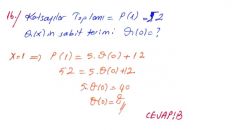 16-) Katsayılar Toplamı = P(1) = 52
Q(x)'in sabit terimi Q(0) = ?
x=1 ⇒ P(1) = 5.Q(0) + 12
52 = 5.Q(0) + 12
5.Q(0) = 40
Q(0) = 8
CEVAP:B